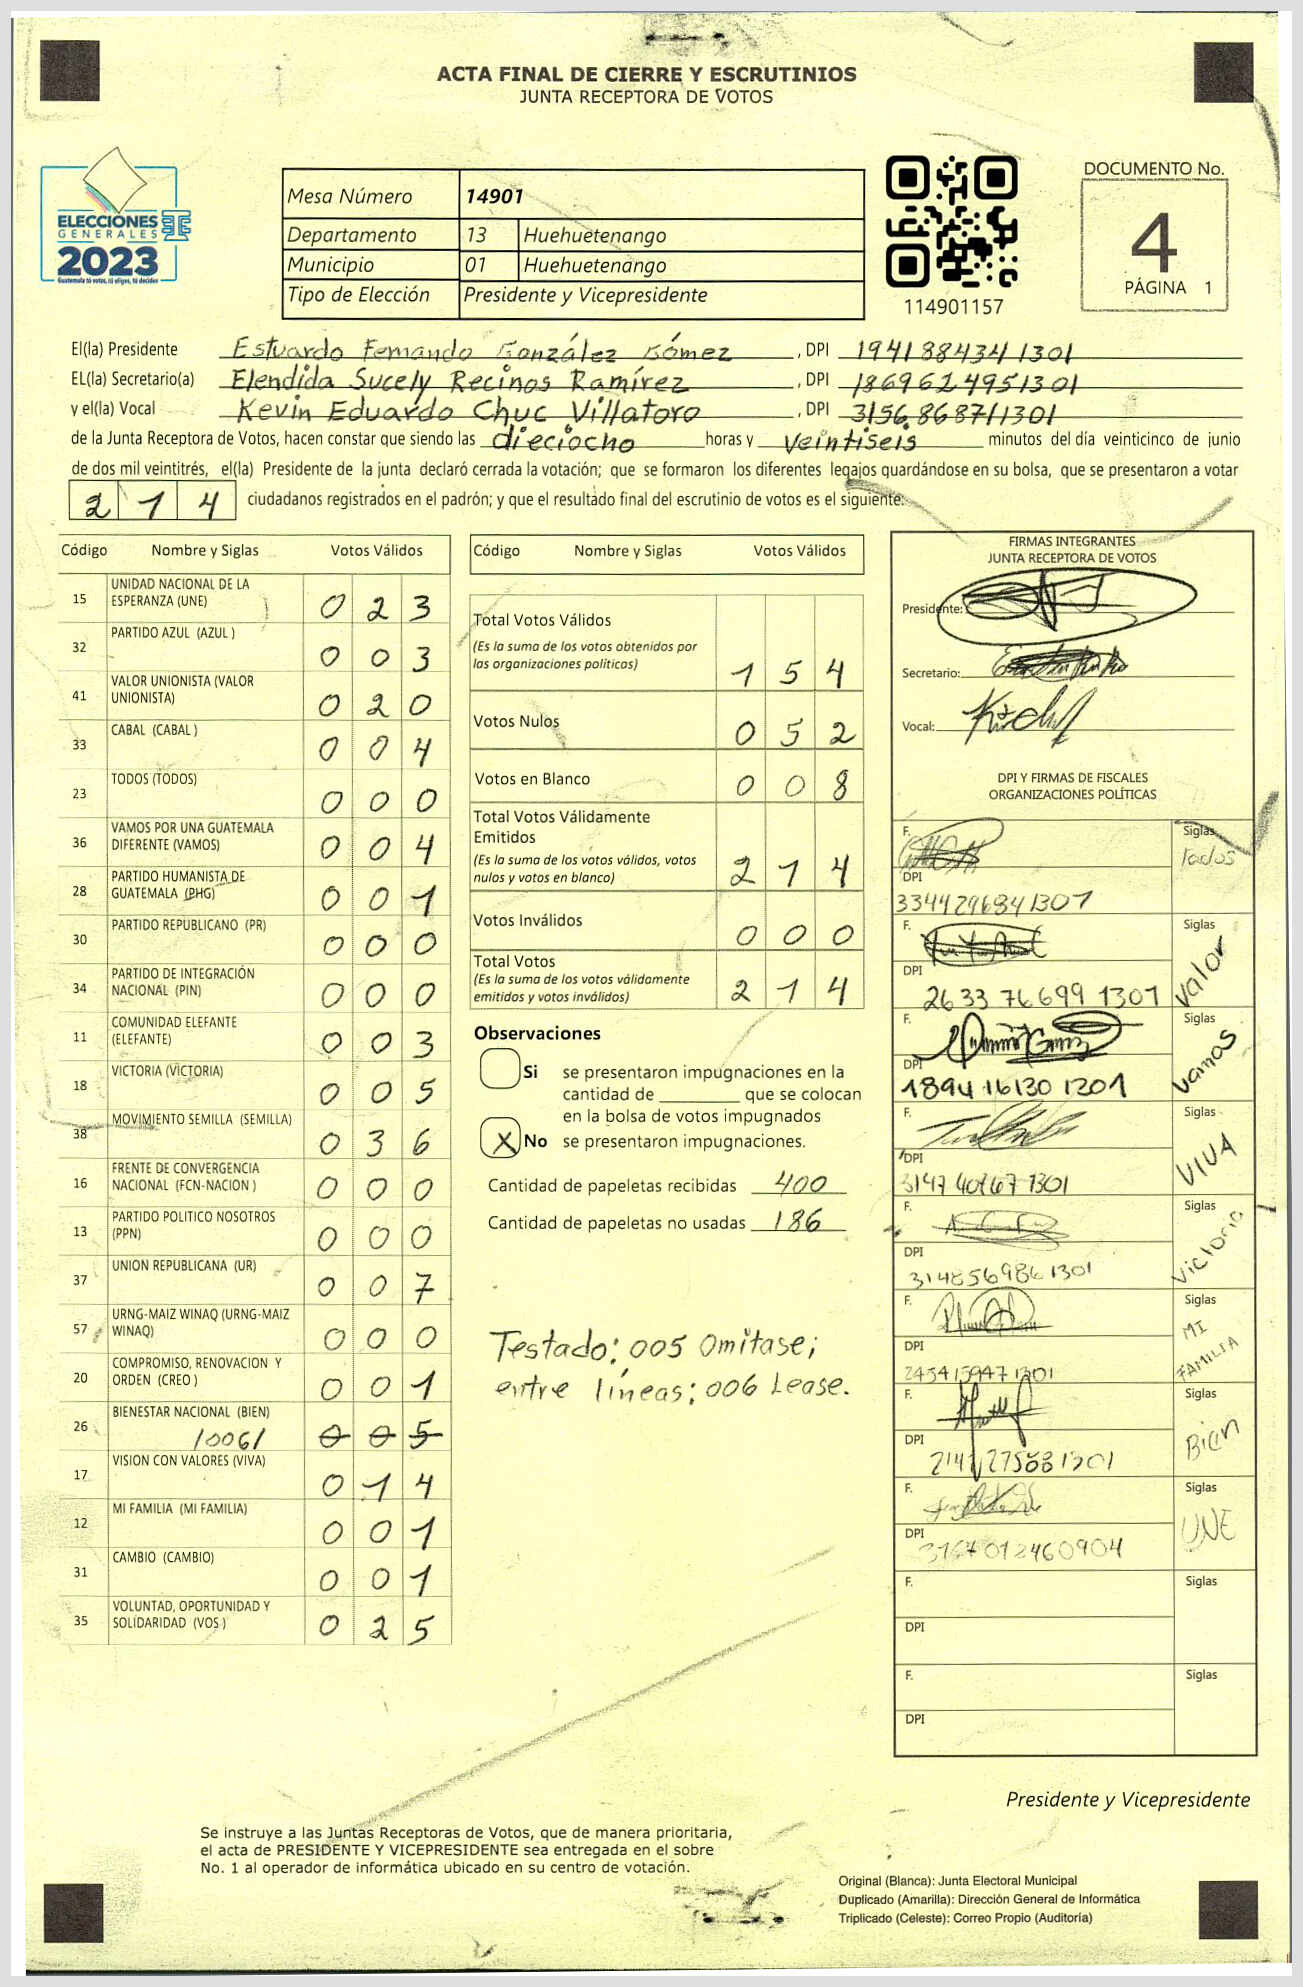 ACTA FINAL DE CIERRE Y ESCRUTINIOS
JUNTA RECEPTORA DE VOTOS
ELECCIONES
GENERALES
2023
Guatemala tú votas, tú eliges, tú decides
Mesa Número 14901
Departamento 13 Huehuetenango
Municipio 01 Huehuetenango
Tipo de Elección Presidente y Vicepresidente
114901157
DOCUMENTO No.
4
PÁGINA 1
El(la) Presidente Estuardo Fernando González Gómez , DPI 1941884341301
EL(la) Secretario(a) Elendida Sucely Recinos Ramírez , DPI 1869624951301
y el(la) Vocal Kevin Eduardo Chuc Villatoro , DPI 3156868711301
de la Junta Receptora de Votos, hacen constar que siendo las dieciocho horas y veintiseis minutos del día veinticinco de junio
de dos mil veintitrés, el(la) Presidente de la junta declaró cerrada la votación; que se formaron los diferentes legajos guardándose en su bolsa, que se presentaron a votar
214 ciudadanos registrados en el padrón; y que el resultado final del escrutinio de votos es el siguiente:
Código Nombre y Siglas Votos Válidos
15 UNIDAD NACIONAL DE LA ESPERANZA (UNE) 023
32 PARTIDO AZUL (AZUL ) 003
41 VALOR UNIONISTA (VALOR UNIONISTA) 020
33 CABAL (CABAL ) 004
23 TODOS (TODOS) 000
36 VAMOS POR UNA GUATEMALA DIFERENTE (VAMOS) 004
28 PARTIDO HUMANISTA DE GUATEMALA (PHG) 001
30 PARTIDO REPUBLICANO (PR) 000
34 PARTIDO DE INTEGRACIÓN NACIONAL (PIN) 000
11 COMUNIDAD ELEFANTE (ELEFANTE) 003
18 VICTORIA (VICTORIA) 005
38 MOVIMIENTO SEMILLA (SEMILLA) 036
16 FRENTE DE CONVERGENCIA NACIONAL (FCN-NACION ) 000
13 PARTIDO POLITICO NOSOTROS (PPN) 000
37 UNION REPUBLICANA (UR) 007
57 URNG-MAIZ WINAQ (URNG-MAIZ WINAQ) 000
20 COMPROMISO, RENOVACION Y ORDEN (CREO ) 001
26 BIENESTAR NACIONAL (BIEN) /006/ 005
17 VISION CON VALORES (VIVA) 014
12 MI FAMILIA (MI FAMILIA) 001
31 CAMBIO (CAMBIO) 001
35 VOLUNTAD, OPORTUNIDAD Y SOLIDARIDAD (VOS ) 025
Código Nombre y Siglas Votos Válidos
Total Votos Válidos
(Es la suma de los votos obtenidos por
las organizaciones políticas) 154
Votos Nulos 052
Votos en Blanco 008
Total Votos Válidamente
Emitidos
(Es la suma de los votos válidos, votos
nulos y votos en blanco) 214
Votos Inválidos 000
Total Votos
(Es la suma de los votos válidamente
emitidos y votos inválidos) 214
Observaciones
Si se presentaron impugnaciones en la
cantidad de ________ que se colocan
en la bolsa de votos impugnados
X No se presentaron impugnaciones.
Cantidad de papeletas recibidas 400
Cantidad de papeletas no usadas 186
Testado: 005 Omitase;
entre líneas: 006 Lease.
FIRMAS INTEGRANTES
JUNTA RECEPTORA DE VOTOS
Presidente:
Secretario:
Vocal:
DPI Y FIRMAS DE FISCALES
ORGANIZACIONES POLÍTICAS
F. Siglas Todos
DPI
F. Siglas Valor
DPI 2633 76699 1301
F. Siglas Vamos
DPI 1894 16130 1301
F. Siglas VIVA
DPI
F. Siglas Victoria
DPI 3148569861301
F. Siglas MI FAMILIA
DPI
F. Siglas Bien
DPI
F. Siglas UNE
DPI
F. Siglas
DPI
F. Siglas
DPI
Presidente y Vicepresidente
Se instruye a las Juntas Receptoras de Votos, que de manera prioritaria,
el acta de PRESIDENTE Y VICEPRESIDENTE sea entregada en el sobre
No. 1 al operador de informática ubicado en su centro de votación.
Original (Blanca): Junta Electoral Municipal
Duplicado (Amarilla): Dirección General de Informática
Triplicado (Celeste): Correo Propio (Auditoría)